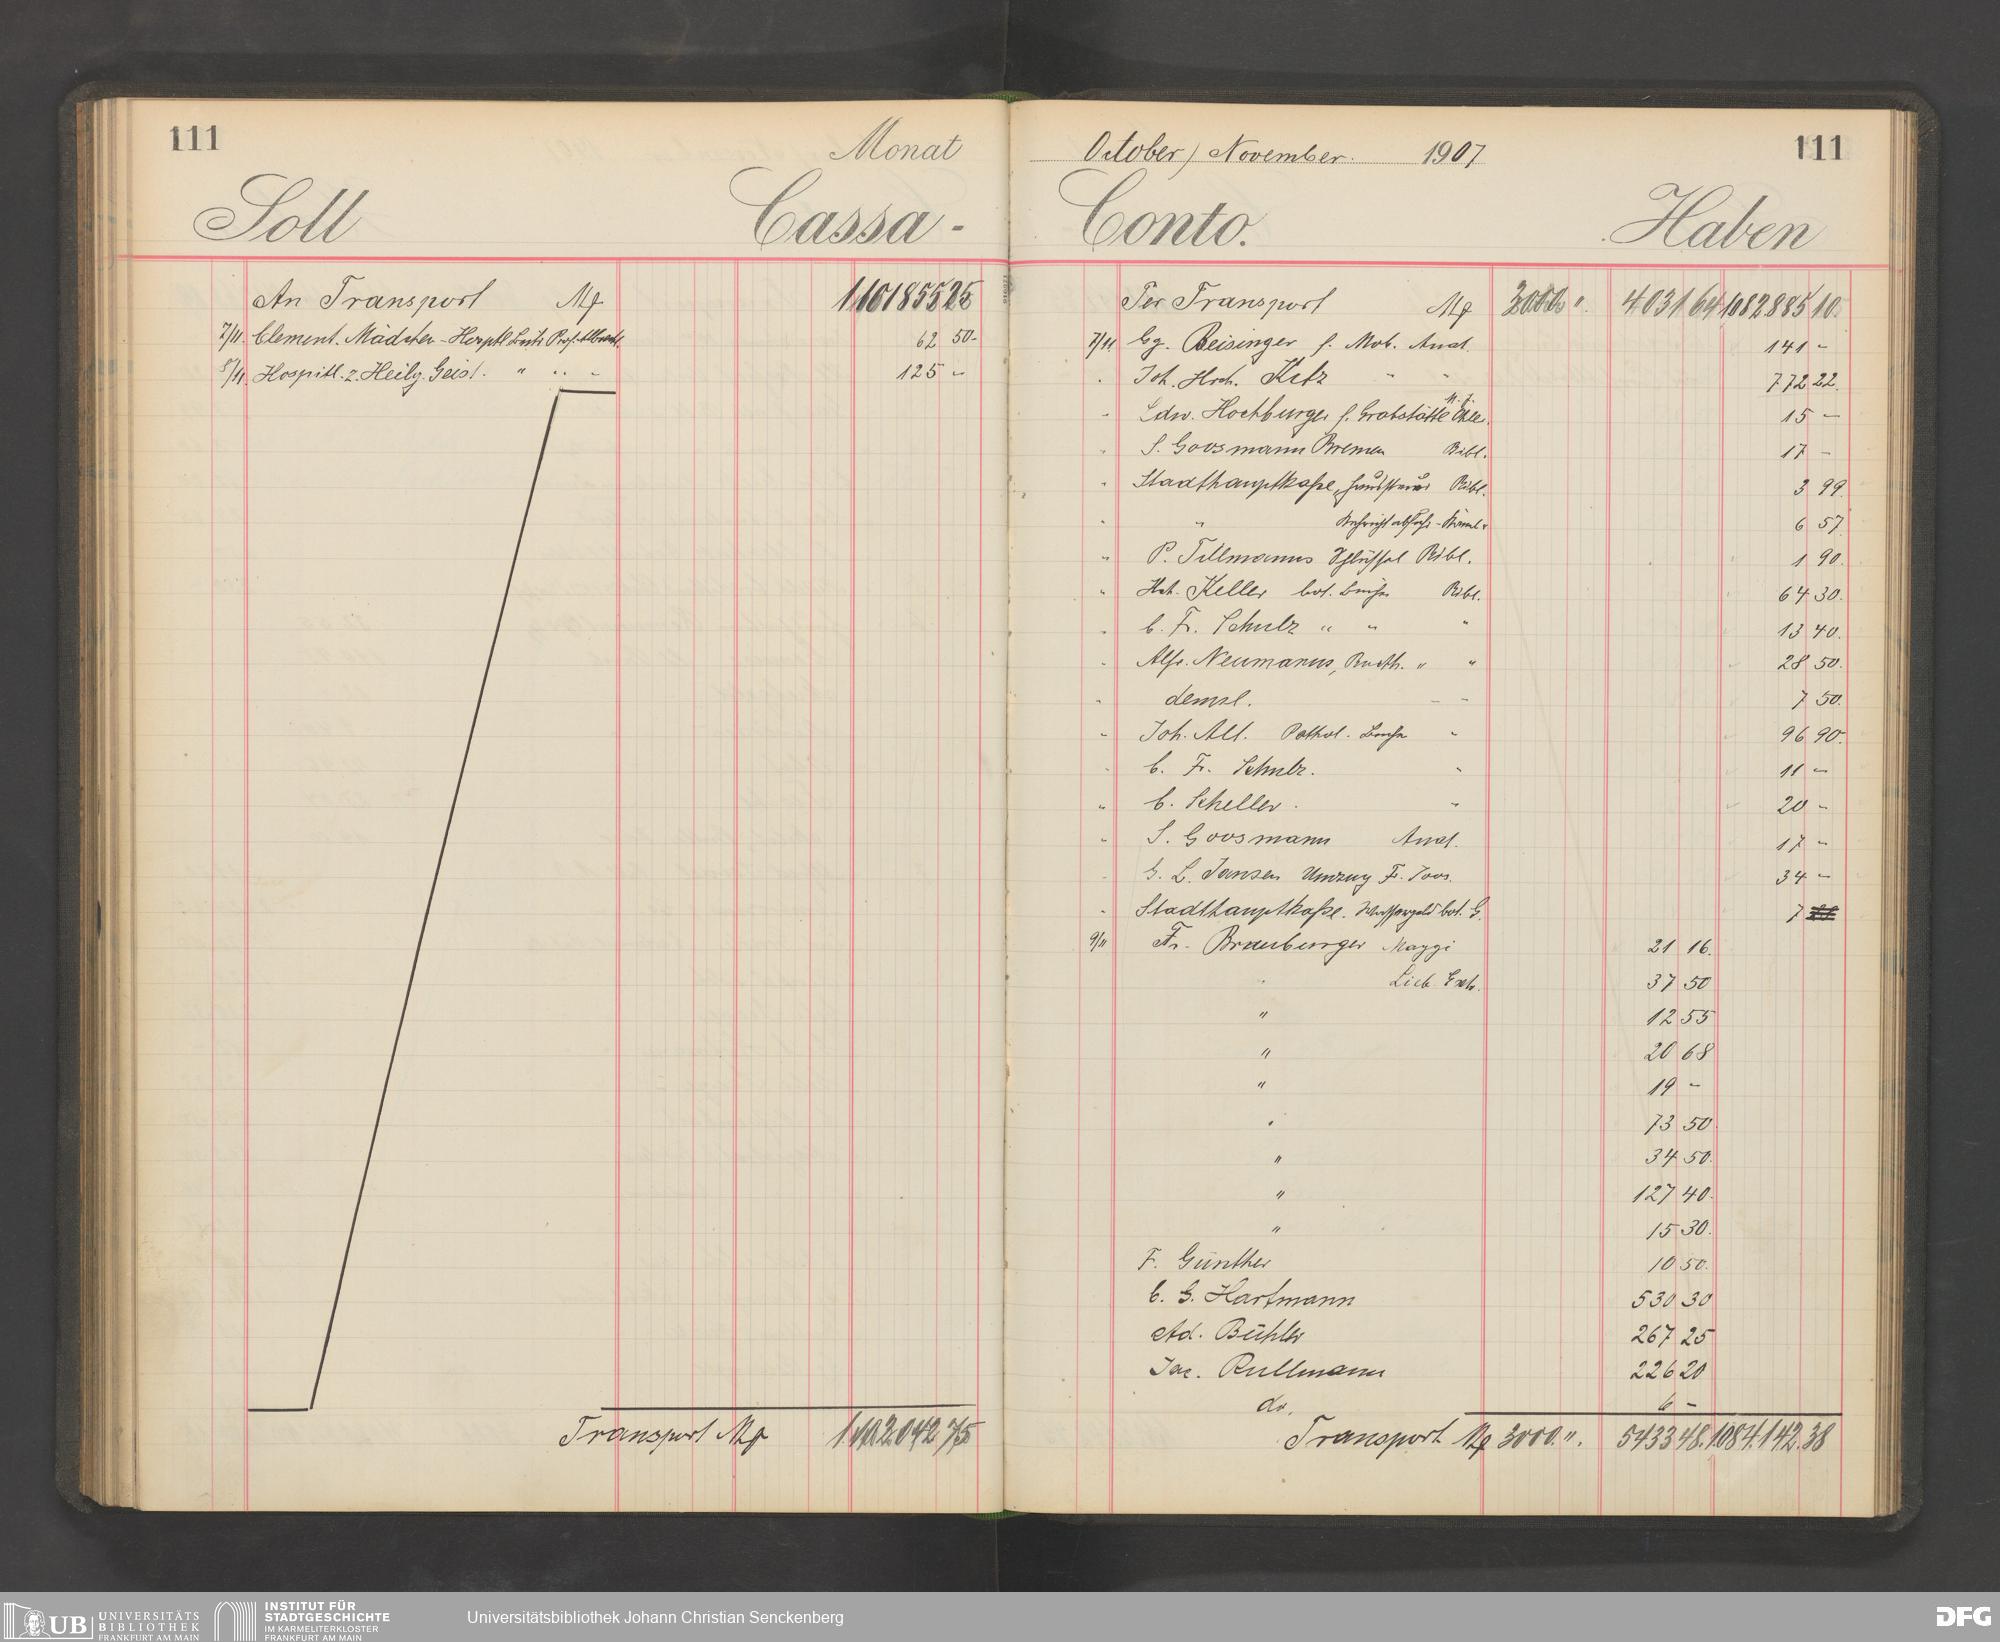 111
Monat
Soll Cassa-
An Transport M 1101855 25
7/11. Clement. Mädchen-Hospitl Prof. Albrecht. 62 50-
8/11 Hospitl. z. Heilg. Geist. " " - 125 -
Transport M 1.102042 75
October / November. 1907 111
Conto. Haben
Per Transport M 3000 ". 4031 64 1082885 10.
7/11. Gg. Reisinger f. Mob. Anat. 141 -
" Joh. Hrch. Ketz " " 772 22.
" Edw. Hochburger f. Grabstätte 15 -
" S. Goosmann Bremen Bibl. 17 -
" Stadthauptkasse, Haussteuer Bibl. 3 99.
" " 6 57
" P. Tillmanns Schlüssel Bibl. 1 90.
" Hch. Keller bot. Bücher Bibl. 64 30.
" C. Fr. Schulz " " " 13 40.
" Alfr. Neumanns, Buchh. " " 28 50.
" demsl. - - 7 50.
" Joh. Alt. Pathol. Bücher " 96 90.
" C. Fr. Schulz. " 11 -
" C. Scheller. " 20 -
" S. Goosmann Anat. 17 -
" G. L. Jansen Umzug Fr. Joos. 34 -
" Stadthauptkasse. Wassergeld bot. G. 7
9/11 Fr. Brauburger Maggi 21 16.
" Lieb. Extr. 37 50
" 12 55
" 20 68
" 19 -
" 73 50
" 34 50.
" 127 40.
" 15 30.
F. Günther 10 50.
C. G. Hartmann 530 30
Ad. Bühler 267 25
Jac. Rullmann 226 20
do. 6 -
Transport M 3000. ". 5433 48. 1084.142. 38
UB UNIVERSITÄTS
BIBLIOTHEK
FRANKFURT AM MAIN
INSTITUT FÜR
STADTGESCHICHTE
IM KARMELITERKLOSTER
FRANKFURT AM MAIN
Universitätsbibliothek Johann Christian Senckenberg
DFG